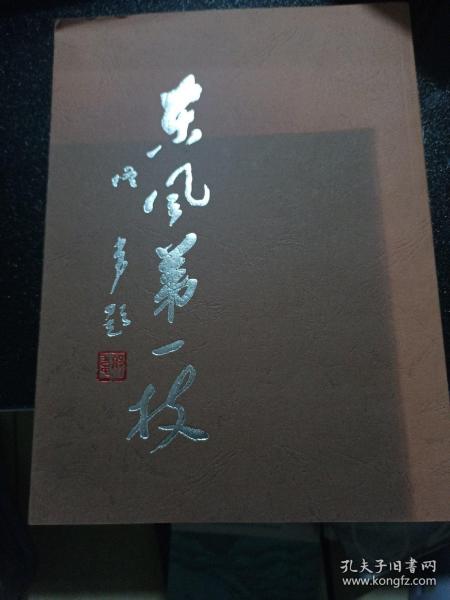 东风第一枝
孔夫子旧书网
www.kongfz.com